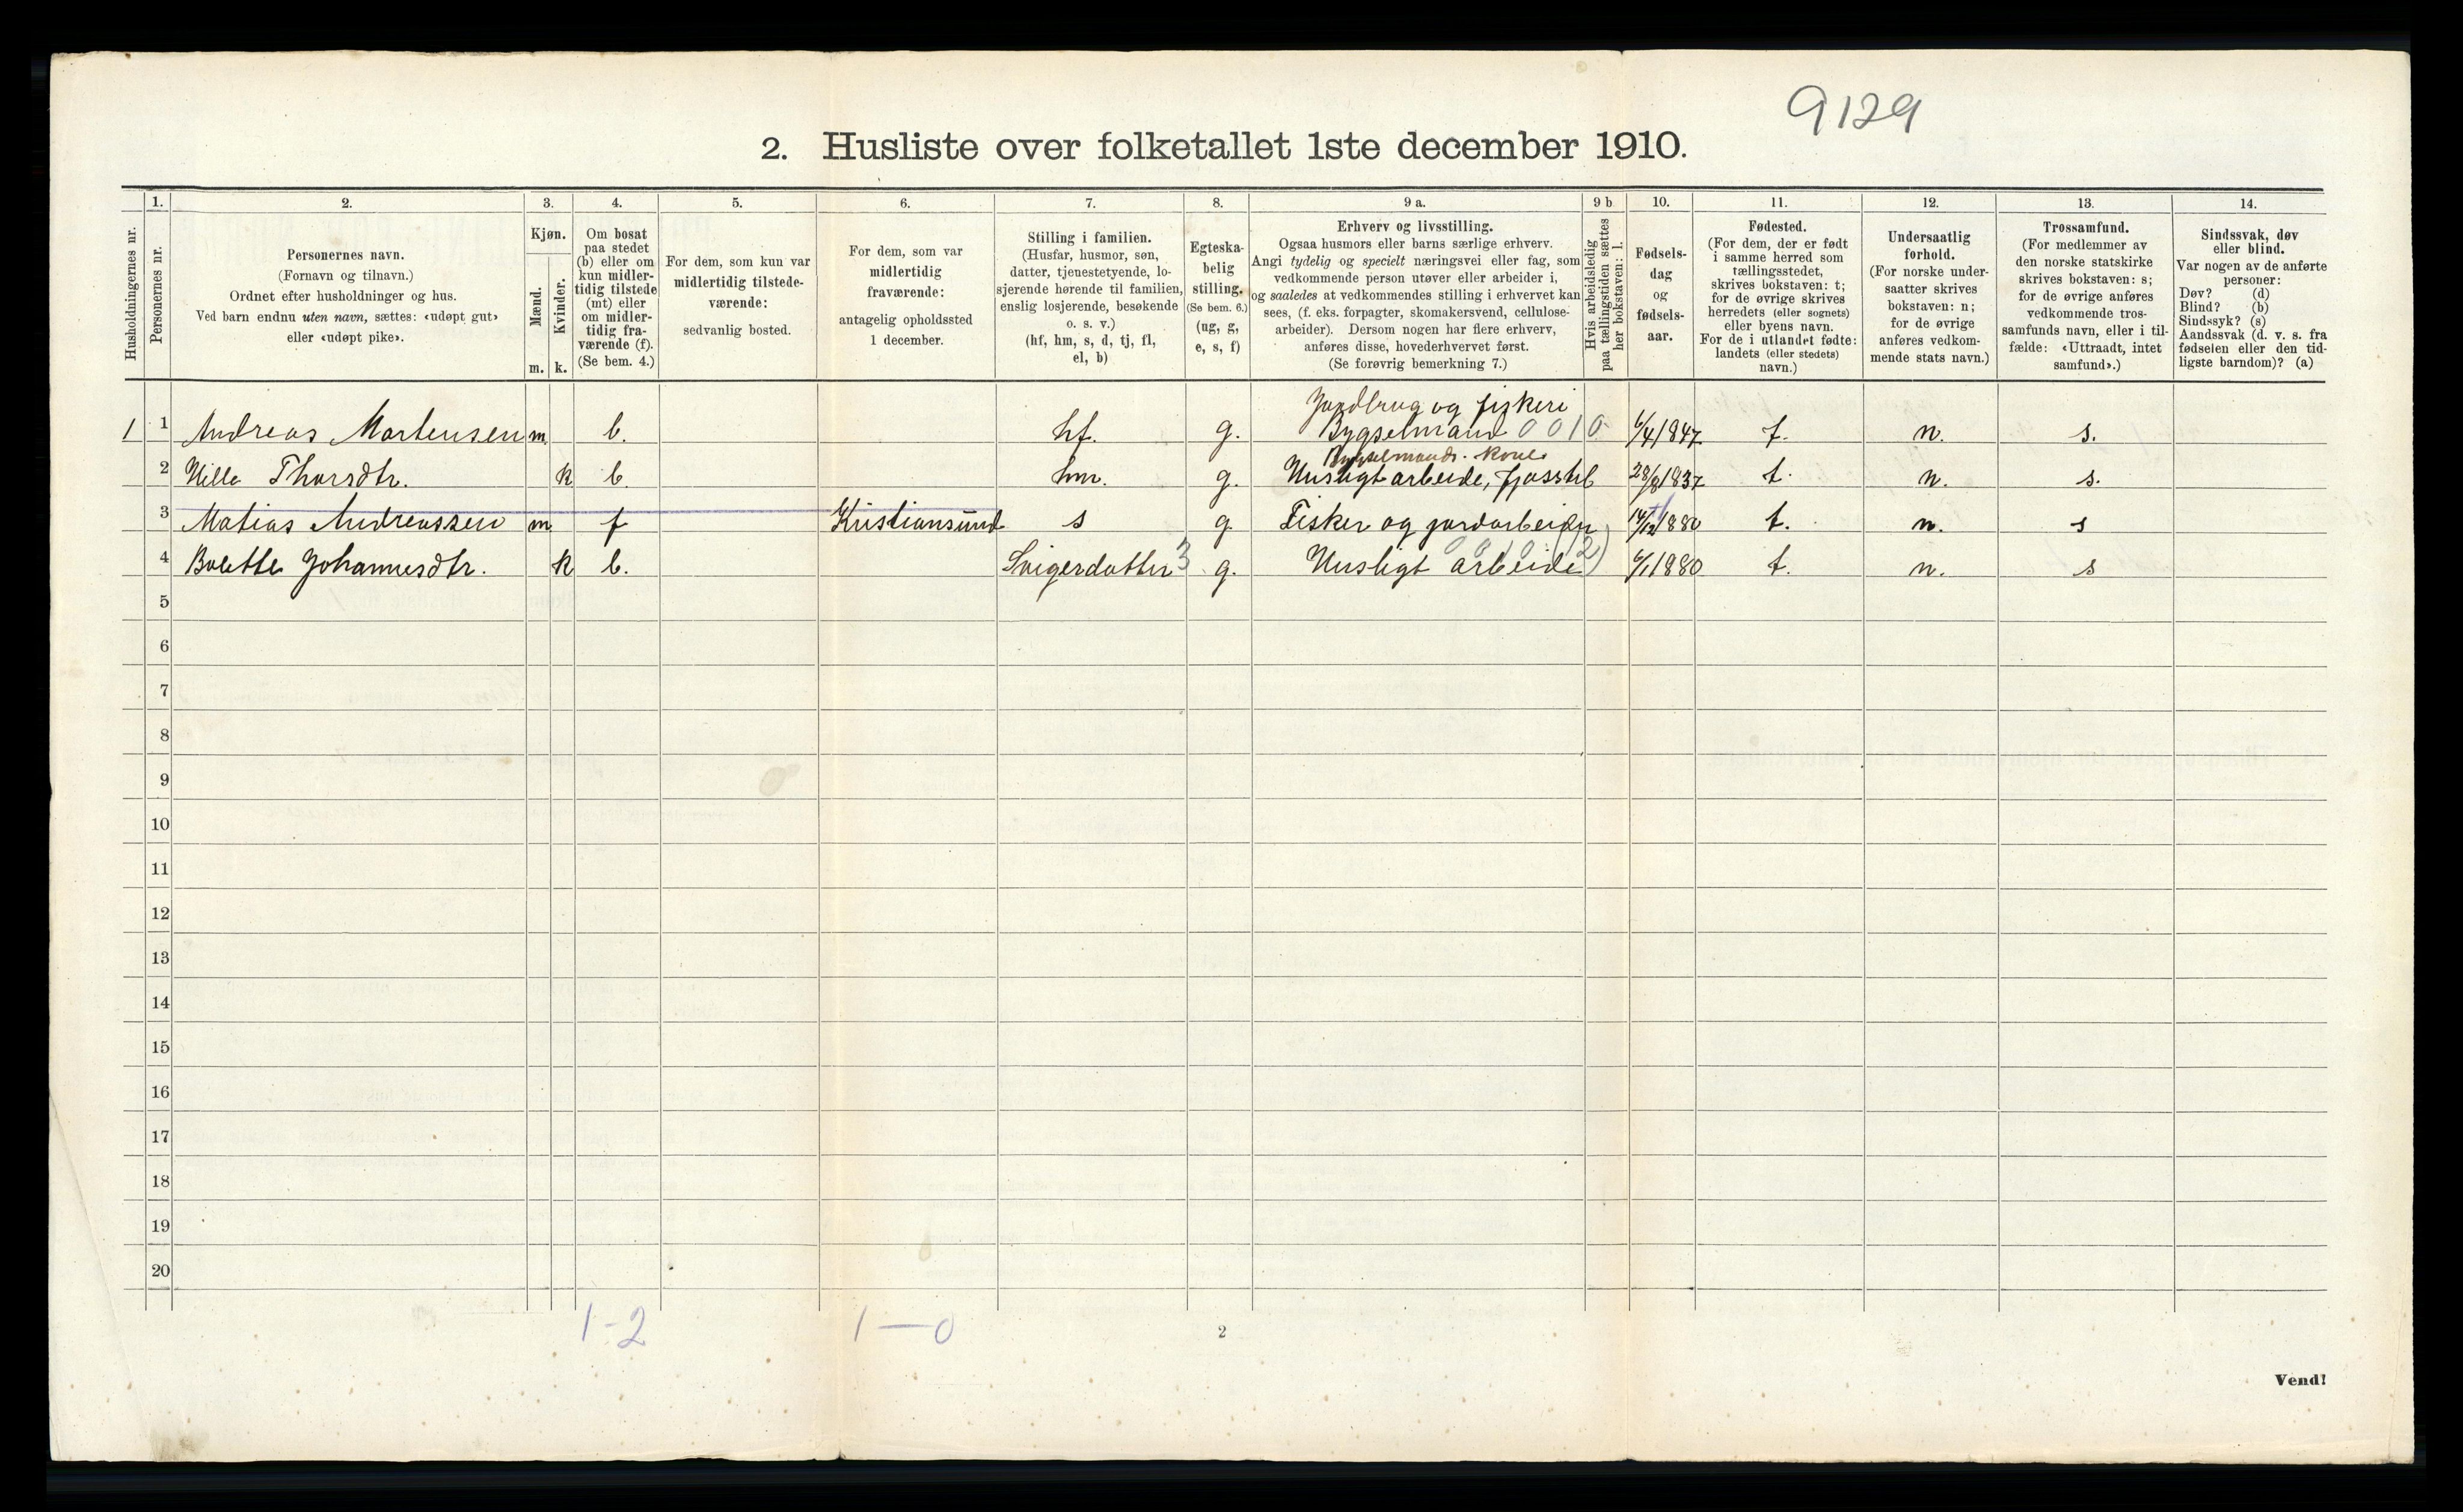 9129
2. Husliste over folketallet 1ste december 1910.
Husholdningernes nr.
1.
Personernes nr.
2.
Personernes navn.
(Fornavn og tilnavn.)
Ordnet efter husholdninger og hus.
Ved barn endnu uten navn, sættes: «udøpt gut»
eller «udøpt pike».
3.
Kjøn.
Mænd.
Kvinder.
m. k.
4.
Om bosat
paa stedet
(b) eller om
kun midler-
tidig tilstede
(mt) eller
om midler-
tidig fra-
værende (f).
(Se bem. 4.)
5.
For dem, som kun var
midlertidig tilstede-
værende:
sedvanlig bosted.
6.
For dem, som var
midlertidig
fraværende:
antagelig opholdssted
1 december.
7.
Stilling i familien.
(Husfar, husmor, søn,
datter, tjenestetyende, lo-
sjerende hørende til familien,
enslig losjerende, besøkende
o. s. v.)
(hf, hm, s, d, tj, fl,
el, b)
8.
Egteska-
belig
stilling.
(Se bem. 6.)
(ug, g,
e, s, f)
9 a.
Erhverv og livsstilling.
Ogsaa husmors eller barns særlige erhverv.
Angi tydelig og specielt næringsvei eller fag, som
vedkommende person utøver eller arbeider i,
og saaledes at vedkommendes stilling i erhvervet kan
sees, (f. eks. forpagter, skomakersvend, cellulose-
arbeider). Dersom nogen har flere erhverv,
anføres disse, hovederhvervet først.
(Se forøvrig bemerkning 7.)
9 b
Hvis arbeidsledig
paa tællingstiden sættes
her bokstaven: l.
10.
Fødsels-
dag
og
fødsels-
aar.
11.
Fødested.
(For dem, der er født
i samme herred som
tællingsstedet,
skrives bokstaven: t;
for de øvrige skrives
herredets (eller sognets)
eller byens navn.
For de i utlandet fødte:
landets (eller stedets)
navn.)
12.
Undersaatlig
forhold.
(For norske under-
saatter skrives
bokstaven: n;
for de øvrige
anføres vedkom-
mende stats navn.)
13.
Trossamfund.
(For medlemmer av
den norske statskirke
skrives bokstaven: s;
for de øvrige anføres
vedkommende tros-
samfunds navn, eller i til-
fælde: «Uttraadt, intet
samfund».)
14.
Sindssvak, døv
eller blind.
Var nogen av de anførte
personer:
Døv? (d)
Blind? (b)
Sindssyk? (s)
Aandssvak (d. v. s. fra
fødselen eller den tid-
ligste barndom)? (a)
Jordbrug og fiskeri
1 1 Andreas Martensen m. b. hf. g. Bygselmand 0010 6/4 1847 t. n. s.
Bygselmands kone
2 Nille Thorsdtr. k b. hm. g. Husligt arbeide, fjosstel 28/8 1837 t. n. s.
3 Matias Andreassen m f Kristiansund s g Fisker og jordarbeider 14/12 1880 t. n. s
4 Bolette Johannesdtr. k b. Svigerdatter 3 g. Husligt arbeide 6/1 1880 t. n. s
5
6
7
8
9
10
11
12
13
14
15
16
17
18
19
20
1-2 1-0
2
Vend!